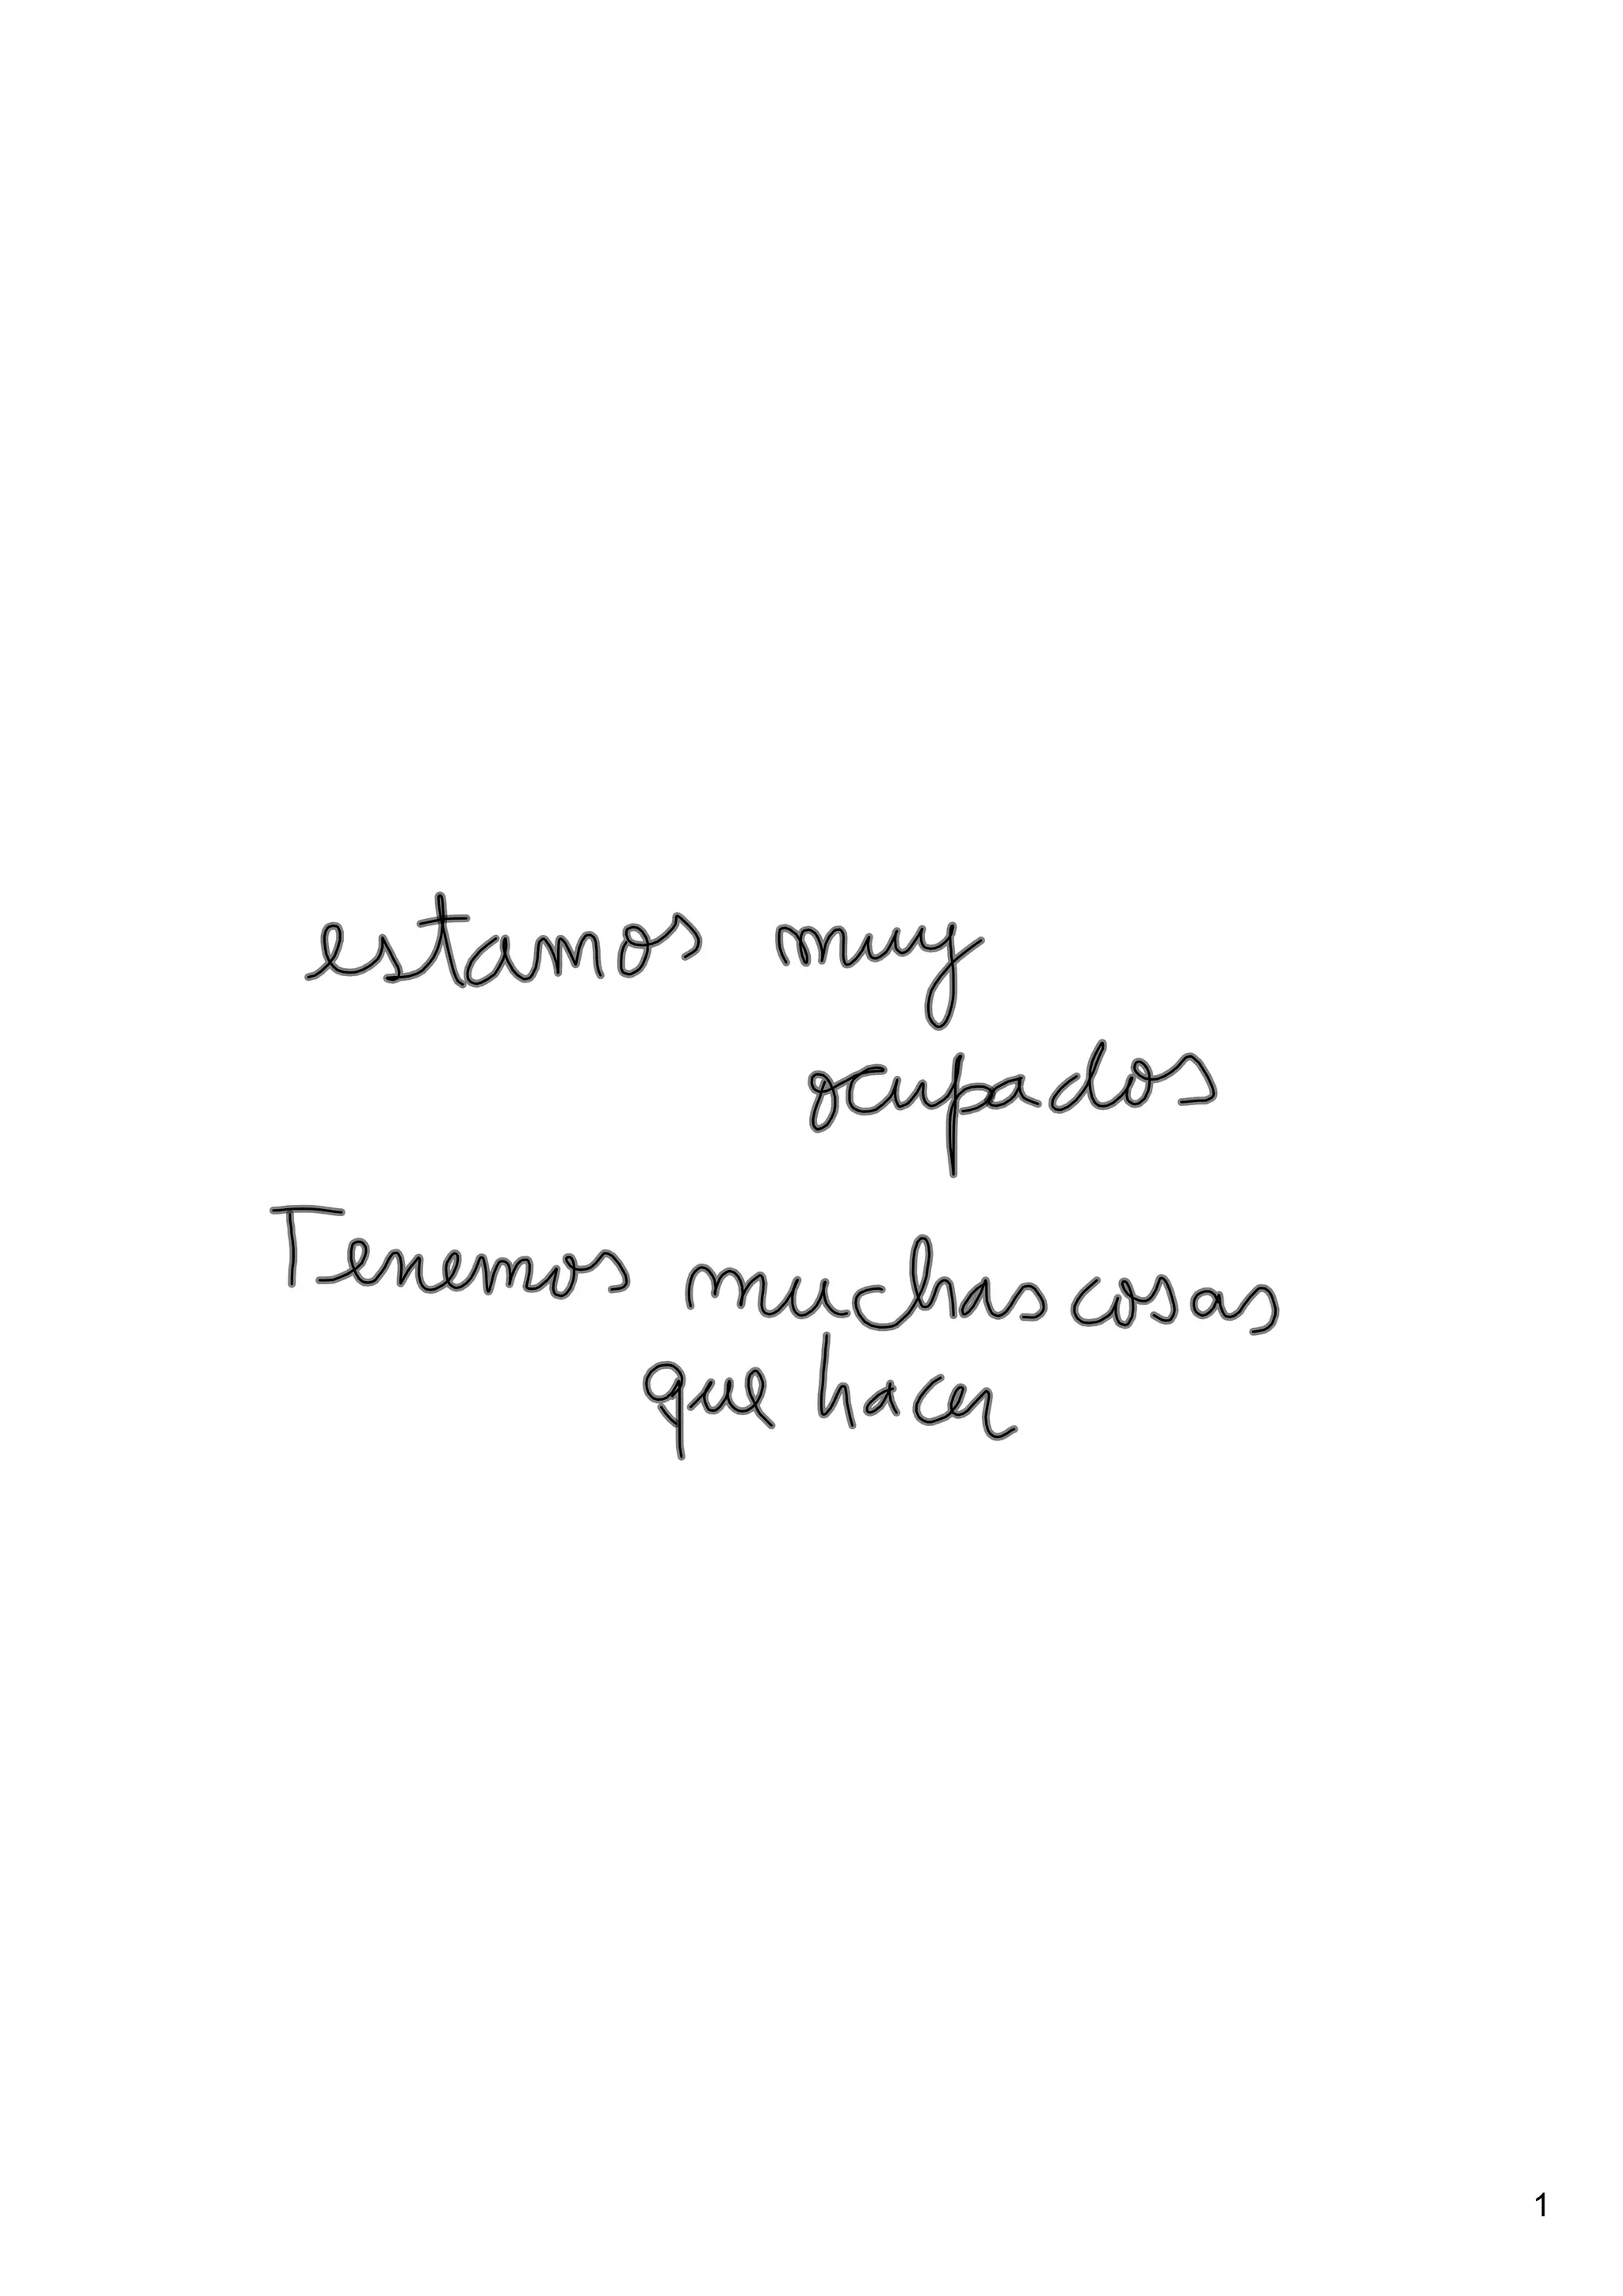 estamos muy
ocupados
Tenemos muchas cosas
que hacer
1